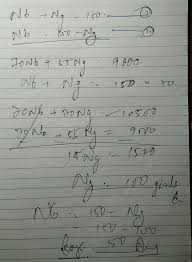 Nb + Ng = 150 — (1)
Nb = 150 - Ng — (11)
70Nb + 55Ng 9000
Nb + Ng = 150 × 70
70Nb + 70Ng = 10500
70Nb + 55Ng = 9000
15Ng = 1500
Ng = 100 girls
Nb = 150 - Ng
150 - 100
50 Boy